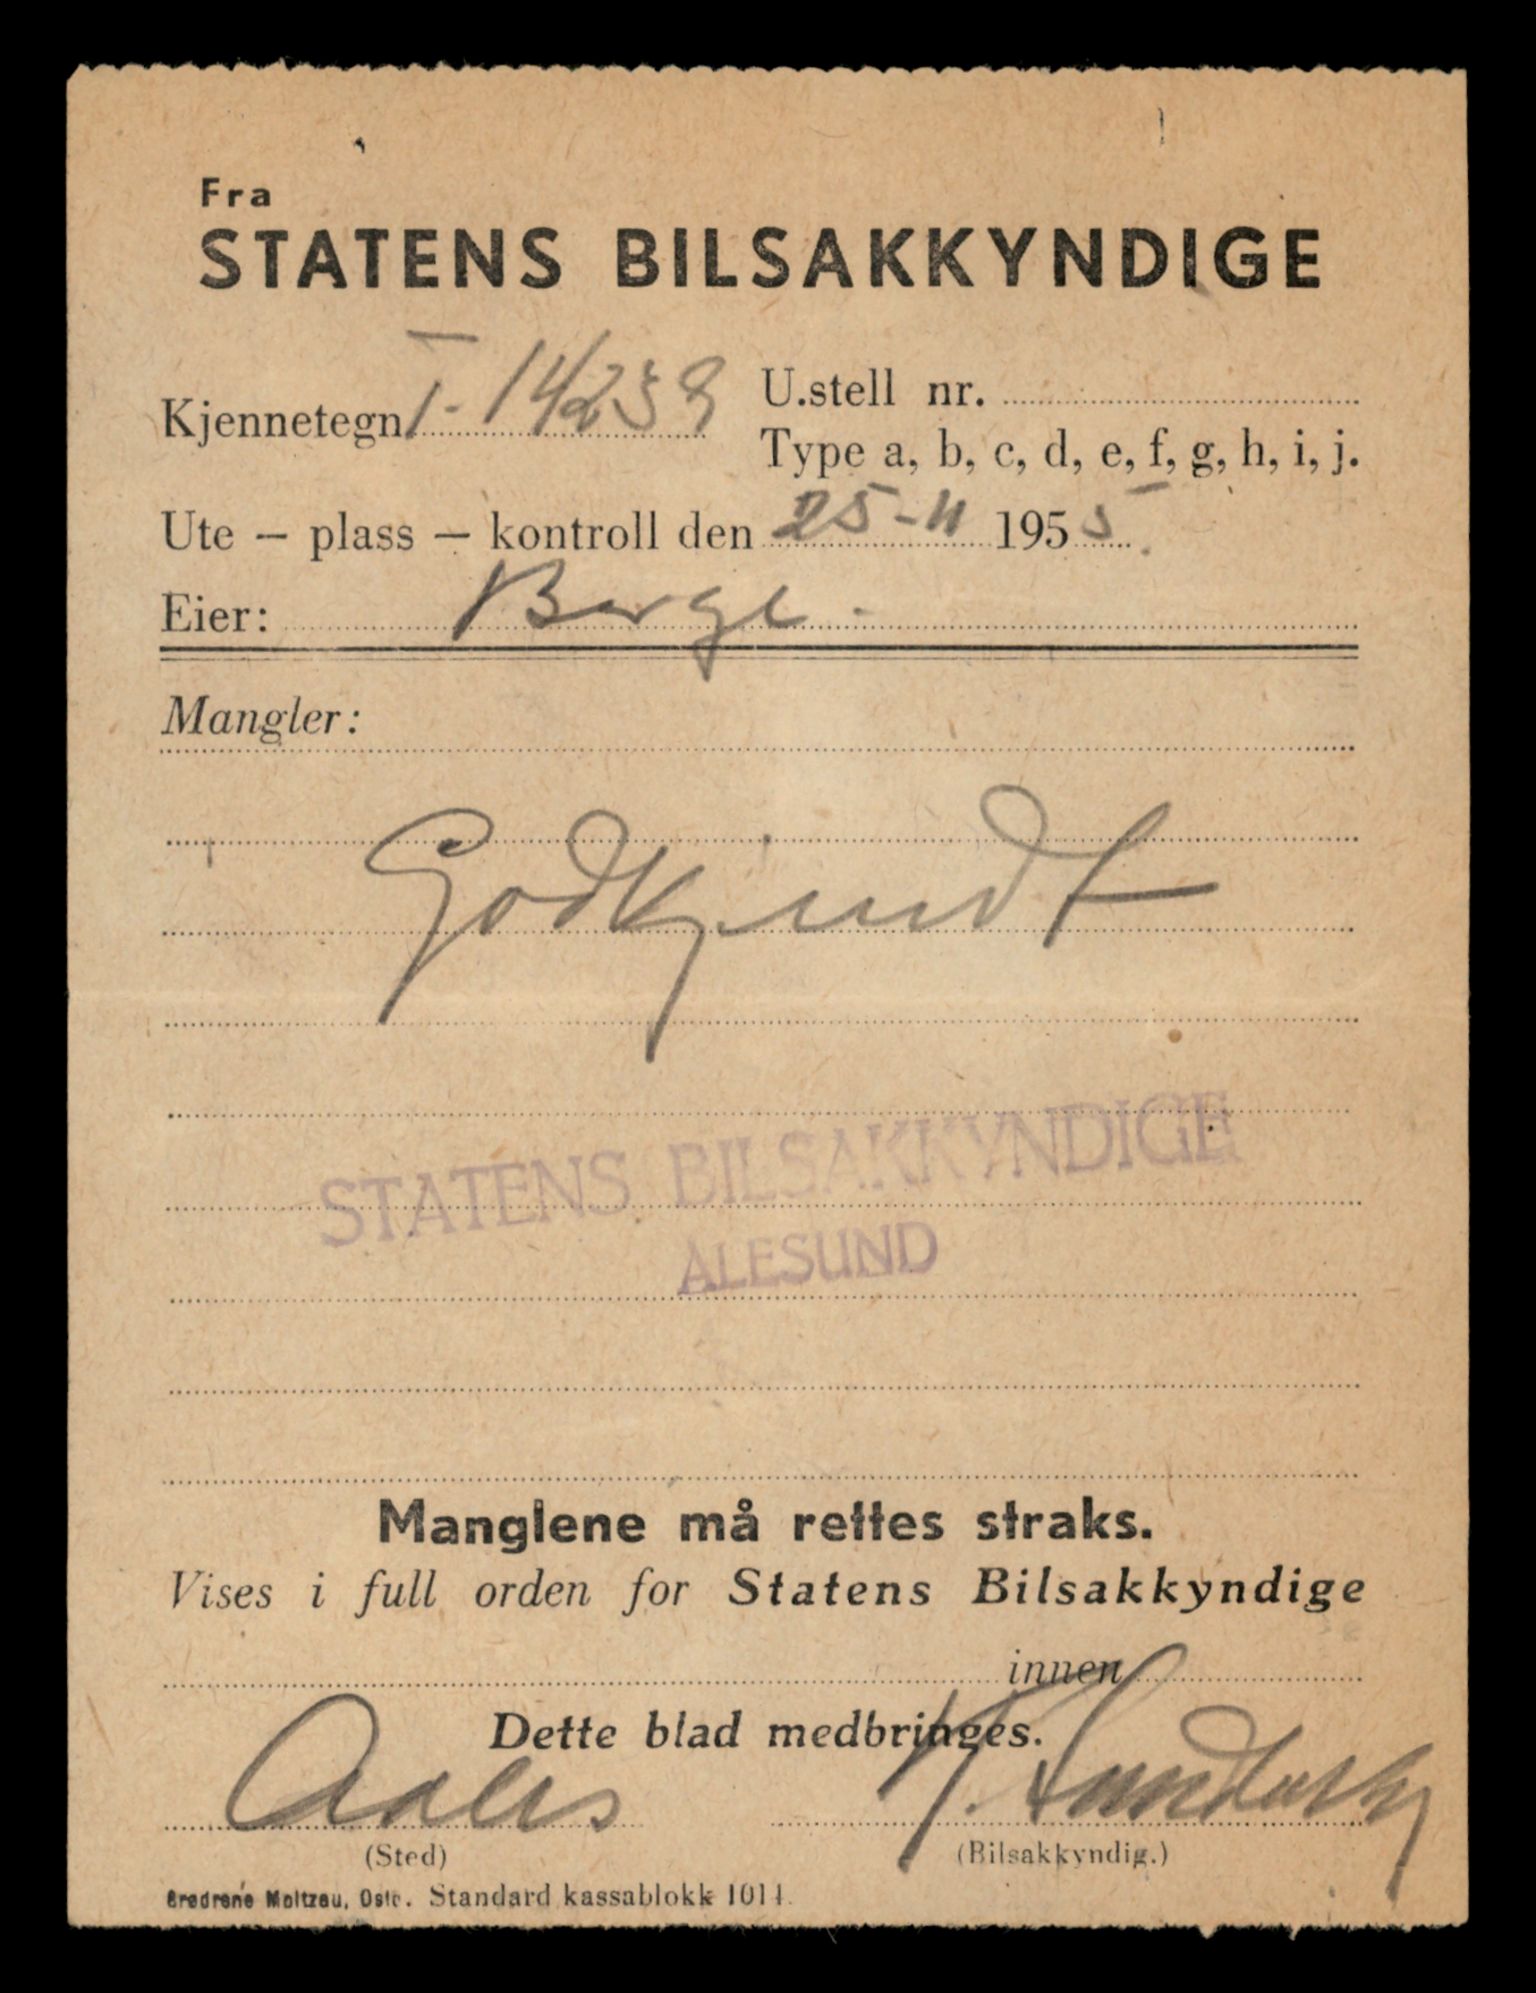 Fra
STATENS BILSAKKYNDIGE
Kjennetegn T-14239 U.stell nr.
Type a, b, c, d, e, f, g, h, i, j.
Ute – plass – kontroll den 25-11 1955
Eier: Berge.
Mangler:
Godkjendt
STATENS BILSAKKYNDIGE
ÅLESUND
Manglene må rettes straks.
Vises i full orden for Statens Bilsakkyndige
innen
Dette blad medbringes.
Aales
(Sted) (Bilsakkyndig.)
Brødrene Moltzau, Oslo. Standard kassablokk 1014.